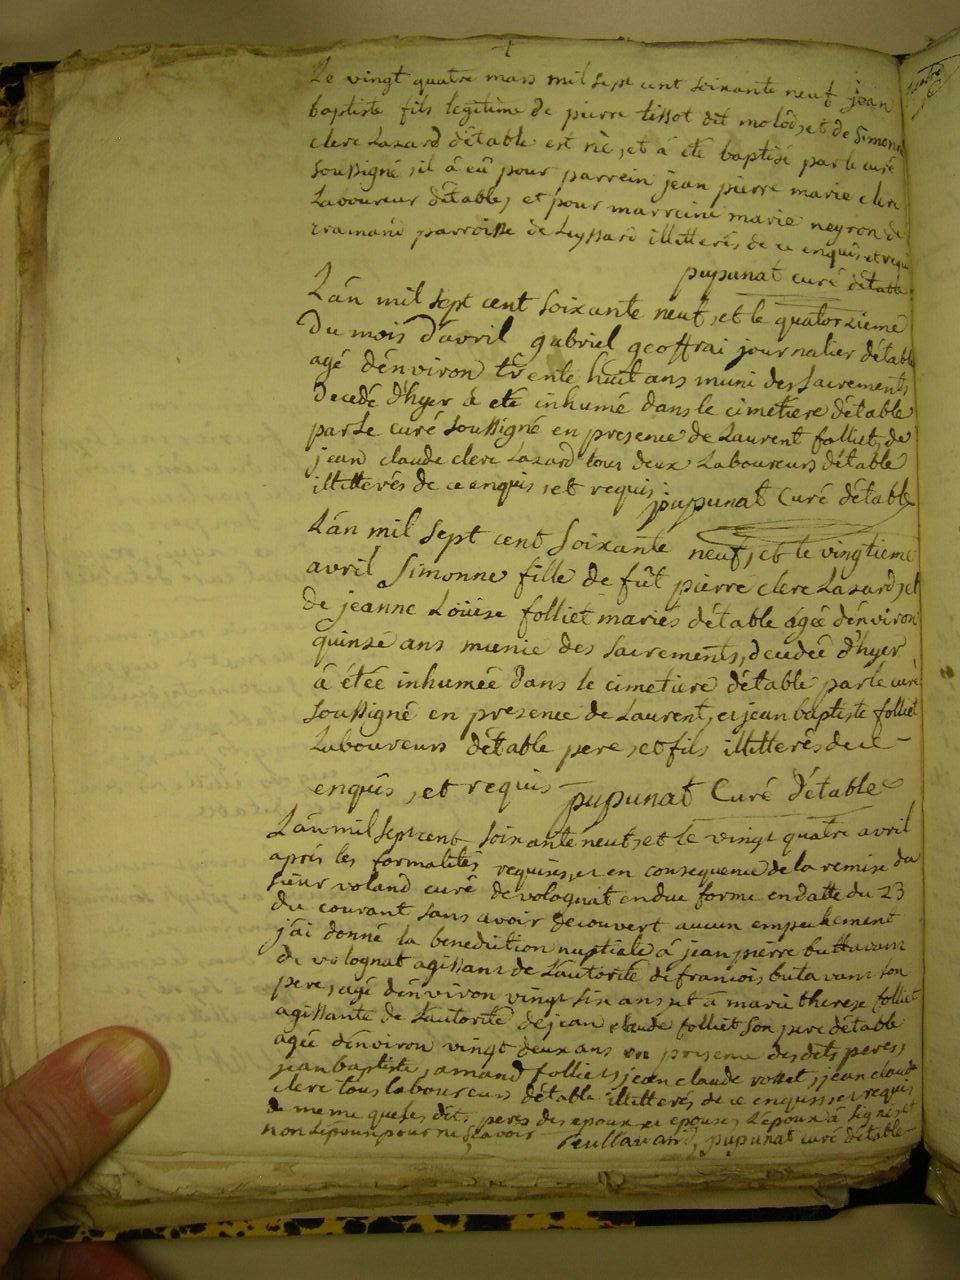 Le vingt quatre mars mil sept cent soixante neuf jean
baptiste fils legitime de pierre tissot dit molod, et de Simonne
clerc Lazard d'étable est né, et à été baptisé par le curé
soussigné, il à eû pour parrein jean pierre marie clerc
Laboureur d'étable, et pour marreine marie neyron de
parroisse de Leyssard illitterés de ce enquis et requis
pupunat curé d'étable
L'án mil sept cent soixante neuf, et le quatorzieme
Du mois d'avril gabriel geoffrai journalier d'étable
agé d'énviron trente huit ans muni des sacrements
Decedé d'hyer à eté inhumé dans le cimetiere d'étable
par Le curé soussigné en presence de Laurent folliet, de
jean claude clerc Lazard tous deux Laboureurs d'étable
illitterés de ce enquis, et requis pupunat Curé d'étable
L'án mil sept cent soixante neuf, et le vingtieme
avril Simonne fille de fût pierre clerc Lazard, et
de jeanne Loüise folliet mariés d'étable ágée d'énviron
quinse ans munie des sacrements, decedée d'hyer
à étée inhumée dans le cimetiere d'étable par le curé
soussigné en presence de Laurent, et jean baptiste folliet
Laboureurs d'étable pere, et fils illitterés de ce
enquis, et requis pupunat Curé d'étable
L'án mil sept cent soixante neuf, et le vingt quatre avril
aprés les formalités requises, et en consequence de la remise du
sieur voland curé de volognat en due forme en datte du 23
du courant sans avoir decouvert aucun empechement
j'ai donné la benediction nuptiale à jean pierre buttavant
de volognat agissant de L'autorité de francois butavant son
pere, agé d'énviron vingt six ans et à marie therese folliet
agissante de L'autorité de jean claude folliet son pere d'étable
agée d'énviron vingt deux ans en presence des dits peres,
jean baptiste, amand folliet, jean claude rosset, jean claude
clerc tous laboureurs d'étable illitterés de ce enquis, et requis
de meme que les dits peres des epoux et epouse, L'époux à signé, et
non L'épouse pour ne sçavoir buttavant, pupunat curé d'étable